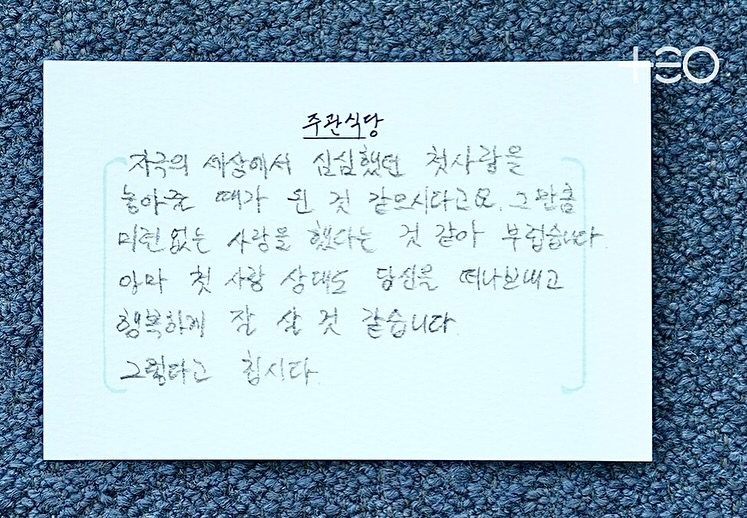 TEO
주관식당
자극의 세상에서 심심했던 첫사랑을
놓아줄 때가 된 것 같으시다고요. 그만큼
미련없는 사랑을 했다는 것 같아 부럽습니다.
아마 첫 사랑 상대도 당신을 떠나보내고
행복하게 잘 살 것 같습니다.
그렇다고 칩시다.